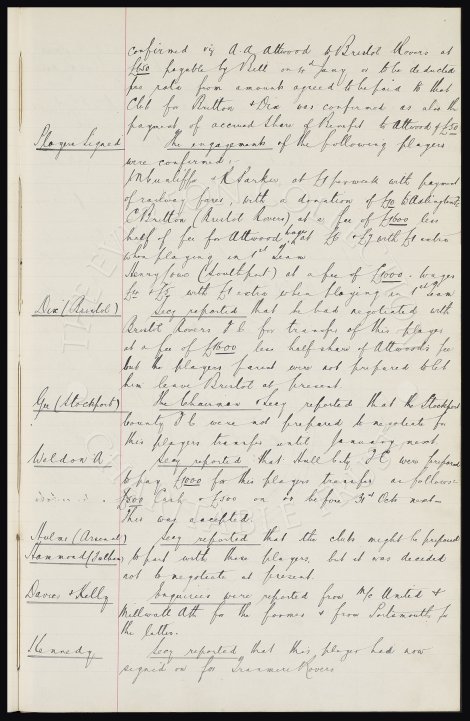 confirmed viz A.A. Attwood to Bristol Rovers at
£650 payable by Bill on 4th Jany is to be deducted
pro rata from amounts agreed to be paid to that
Club for Britton & Dix was confirmed as also the
payment of accrued share of Benefit to Attwood of £50
Players Signed The engagements of the following players
were confirmed:-
J N Cunliffe & R Parker, at £1 per week with payment
of railway fares, with a donation of £10 to Adlington
C Britton (Bristol Rovers) at a fee of £1600 less
half of fee for Attwood, wages at £6 & £7 with £1 extra
when playing in 1st Team
Henry (Southport) at a fee of £1000. Wages
£ & £ with £1 extra when playing in 1st Team
Dix (Bristol) Secy reported that he had negotiated with
Bristol Rovers F C for transfer of this player
at a fee of £1600 less half share of Attwood's fee
but the players parent were not prepared to let
him leave Bristol at present.
Gee (Stockport) The Chairman & Secy reported that the Stockport
County F C were not prepared to negotiate for
this players transfer until January next
Weldon A. Secy reported that Hull City F C were prepared
to pay £1000 for this players transfer as follows:-
£500 Cash & £500 on or before 31st Octr next-
This was accepted.
Hulme (Arsenal) Secy reported that the clubs might be prepared
Hammond (Fulham) to part with these players, but it was decided
not to negotiate at present.
Davies & Kelly Enquiries were reported from M/c United &
Millwall Ath for the former & from Portsmouth for
the latter.
Kennedy Secy reported that this player had now
signed on for Tranmere Rovers